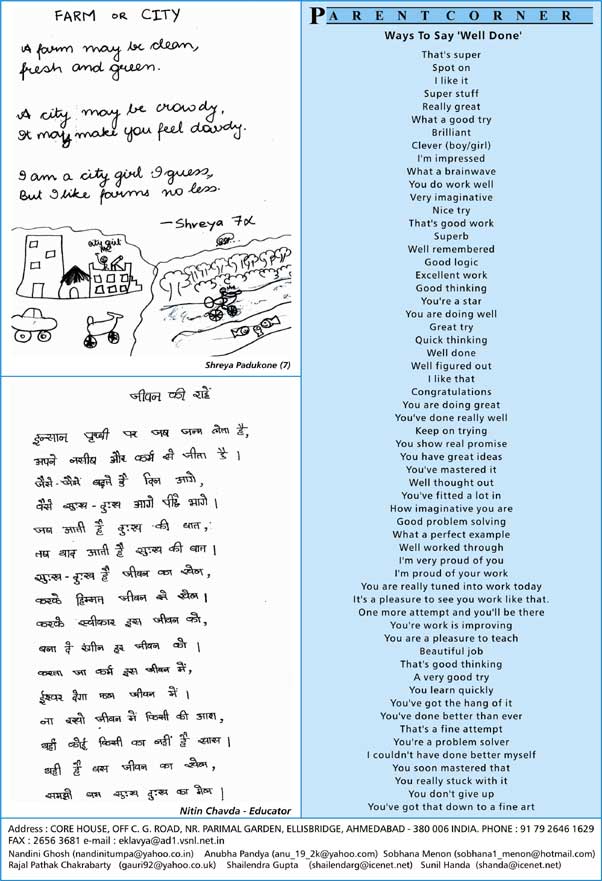 FARM OR CITY
A farm may be clean,
fresh and green.
A city may be crowdy,
It may make you feel dowdy.
I am a city girl I guess,
But I like farms no less.
—Shreya 7α
city girl
me
Shreya Padukone (7)
जीवन की राहें
इन्सान पृथ्वी पर जब जन्म लेता है,
अपने नसीब और कर्म से जीता है।
जैसे-जैसे बढ़ते हैं दिन आगे,
वैसे सुःख-दुःख आगे पीछे भागे।
जब आती है दुःख की बात,
तब याद आती है सुःख की बात।
सुःख-दुःख है जीवन का खेल,
करके हिम्मत जीवन से खेल।
करके स्वीकार इस जीवन को,
बना दे रंगीन हर जीवन को।
करता जा कर्म इस जीवन में,
ईश्वर देगा फल जीवन में।
ना रखो जीवन में किसी की आश,
यहाँ कोई किसी का नहीं है खास।
यही है बस जीवन का खेल,
समझो बस सुःख दुःख का मेल।
Nitin Chavda - Educator
PARENT CORNER
Ways To Say 'Well Done'
That's super
Spot on
I like it
Super stuff
Really great
What a good try
Brilliant
Clever (boy/girl)
I'm impressed
What a brainwave
You do work well
Very imaginative
Nice try
That's good work
Superb
Well remembered
Good logic
Excellent work
Good thinking
You're a star
You are doing well
Great try
Quick thinking
Well done
Well figured out
I like that
Congratulations
You are doing great
You've done really well
Keep on trying
You show real promise
You have great ideas
You've mastered it
Well thought out
You've fitted a lot in
How imaginative you are
Good problem solving
What a perfect example
Well worked through
I'm very proud of you
I'm proud of your work
You are really tuned into work today
It's a pleasure to see you work like that.
One more attempt and you'll be there
You're work is improving
You are a pleasure to teach
Beautiful job
That's good thinking
A very good try
You learn quickly
You've got the hang of it
You've done better than ever
That's a fine attempt
You're a problem solver
I couldn't have done better myself
You soon mastered that
You really stuck with it
You don't give up
You've got that down to a fine art
Address : CORE HOUSE, OFF C. G. ROAD, NR. PARIMAL GARDEN, ELLISBRIDGE, AHMEDABAD - 380 006 INDIA. PHONE : 91 79 2646 1629
FAX : 2656 3681 e-mail : eklavya@ad1.vsnl.net.in
Nandini Ghosh (nandinitumpa@yahoo.co.in) Anubha Pandya (anu_19_2k@yahoo.com) Sobhana Menon (sobhana1_menon@hotmail.com)
Rajal Pathak Chakrabarty (gauri92@yahoo.co.uk) Shailendra Gupta (shailendarg@icenet.net) Sunil Handa (shanda@icenet.net)